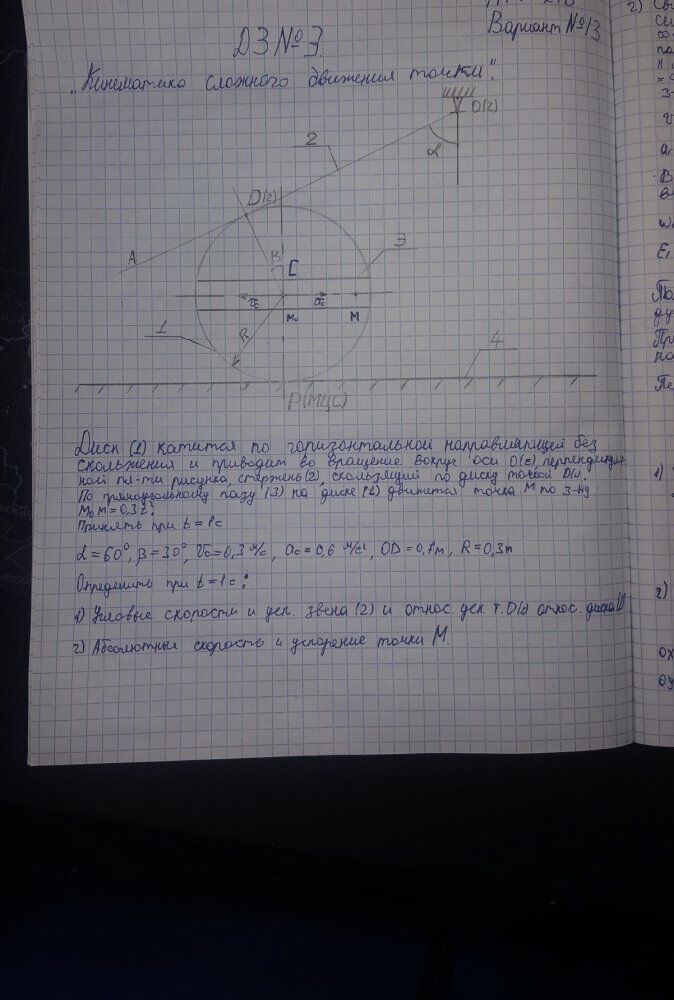 ДЗ №3.
Вариант №13
"Кинематика сложного движения точки".
O(z)
2
α
D(2)
A
3
β
C
v̅c
a̅c
M₀
M
1
R
4
P(МЦС)
Диск (1) катится по горизонтальной направляющей без
скольжения и приводит во вращение вокруг оси O(z), перпендикуляр-
ной пл-ти рисунка, стержень(2), скользящий по диску точкой D(2).
По прямолинейному пазу (3) на диске (1) движется точка M по з-ну
M₀M=0,3t;
Принять при t=1c
α=60°, β=30°, Vc=0,3 м/с, ac=0,6 м/с², OD=0,7м, R=0,3м
Определить при t=1c:
1) Угловые скорости и уск. звена (2) и относ. уск. т. D(2) относ. диска (1)
2) Абсолютные скорость и ускорение точки M.